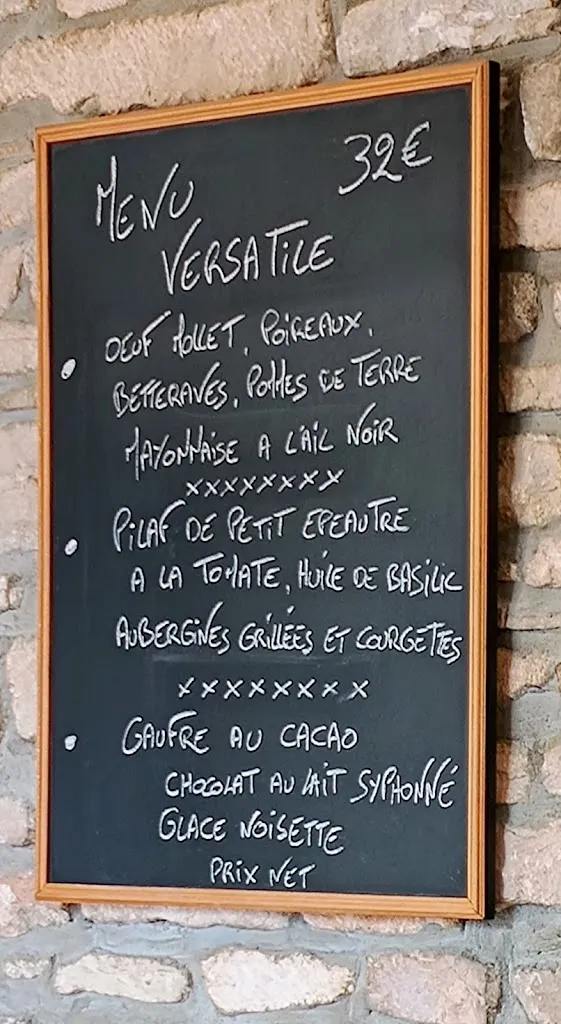 MENU 32€
VERSATILE
OEUF MOLLET, POIREAUX,
BETTERAVES, POMMES DE TERRE
MAYONNAISE A L'AIL NOIR
xxxxxxxx
PILAF DE PETIT EPEAUTRE
A LA TOMATE, HUILE DE BASILIC
AUBERGINES GRILLÉES ET COURGETTES
xxxxxxxx
GAUFRE AU CACAO
CHOCOLAT AU LAIT SYPHONNÉ
GLACE NOISETTE
PRIX NET